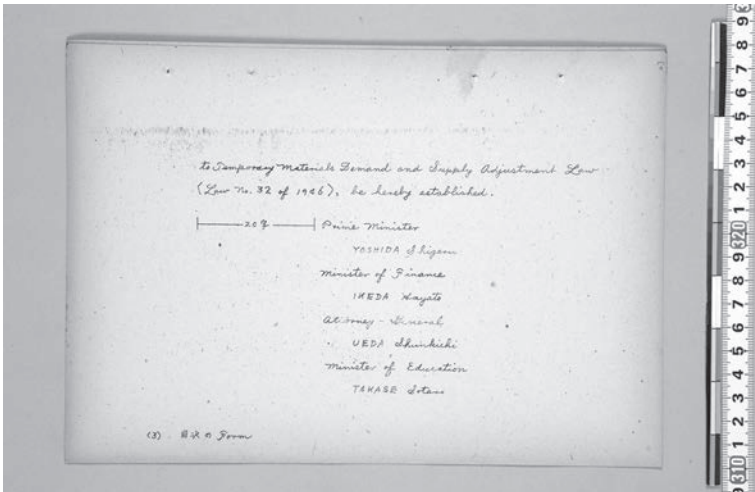 to Temporary Materials Demand and Supply Adjustment Law
(Law No. 32 of 1946), be hereby established.
20 Prime Minister
YOSHIDA Shigeru
Minister of Finance
IKEDA Hayato
Attorney-General
UEDA Shunkichi
Minister of Education
TAKASE Sotaro
(3) Form
9 8 7 6 5 4 3 2 1 320 9 8 7 6 5 4 3 2 1 310 9